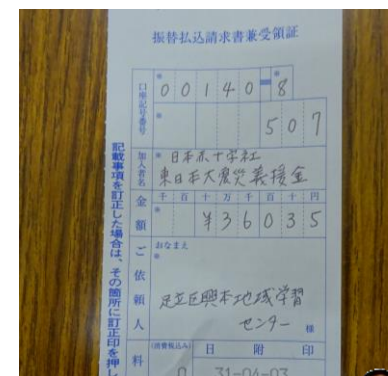 振替払込請求書兼受領証
口座記号番号
00140=8
507
加入者名
日本赤十字社
東日本大震災義援金
金額
千百十万千百十円
¥36035
ご依頼人
おなまえ
足立区興本地域学習
センター 様
料
(消費税込み)
0
日附印
31-04-03
記載事項を訂正した場合は、その箇所に訂正印を押し